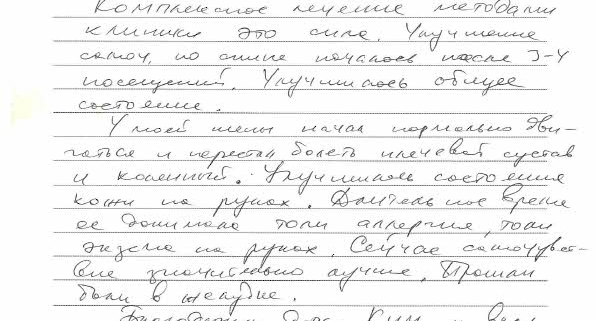 Комплексное лечение методами
клиники это сила. Улучшение
самоч. по спине началось после 3-4
посещений. Улучшилось общее
состояние.
У моей жены начал нормально дви-
гаться и перестал болеть плечевой сустав
и коленный. Улучшилось состояние
кожи на руках. Длительное время
ее донимала толи аллергия, толи
экзема на руках. Сейчас самочувст-
вие значительно лучше. Прошли
боли в желудке.
Ким и всем